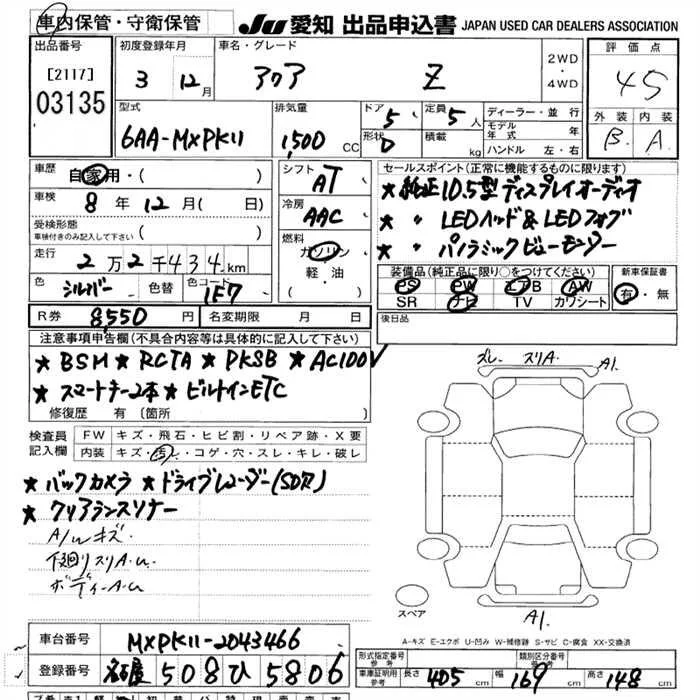 車内保管・守衛保管 JU 愛知 出品申込書 JAPAN USED CAR DEALERS ASSOCIATION
出品番号 初度登録年月 車名・グレード 2WD・4WD 評価点
[2117] 03135 3年 12月 アクア Z 45
型式 排気量 ドア 定員 ディーラー・並行 外装 内装
6AA-MXPK11 1,500 CC 5 5人 モデル年式 年 B. A.
形状 D 積載 kg ハンドル 左・右
車歴 自家用・( ) シフト AT セールスポイント(正常に機能するものに限ります)
車検 8年 12月( 日) 冷房 AAC ★純正10.5型ディスプレイオーディオ
受検形態 車検付きのみ記入して下さい ( ) 燃料 ★ 〃 LEDヘッド&LEDフォグ
走行 2万2千434km ガソリン 軽・油 ★ 〃 パノラミックビューモニター
色 シルバー 色替 色コード 1E7 装備品(純正品に限り○をつけてください) 新車保証書
PS PW エアB AW 有・無
SR ナビ TV カワシート
R券 8,550円 名変期限 月 日 後日品
注意事項申告欄(不具合内容等は具体的に記入して下さい)
★BSM ★RCTA ★PKSB ★AC100V
★スマートキー2本 ★ビルトインETC
修復歴 有 〔箇所
ズレ. スリA. A1.
検査員記入欄 FW キズ・飛石・ヒビ割・リペア跡・X要
内装 キズ・汚・コゲ・穴・スレ・キレ・破レ
★バックカメラ ★ドライブレコーダー(SD欠)
★クリアランスソナー
A/W キズ.
下廻りスリA.U.
ボディーA.U
スペア A1.
A-キズ E-エクボ U-凹み W-補修跡 S-サビ C-腐食 XX-交換済
車台番号 MXPK11-2043466 形式指定番号 参考 類別区分番号 参考
登録番号 名古屋 508 ひ 5806 車庫証明用参考 長さ 405 cm 幅 169 cm 高さ 148 cm